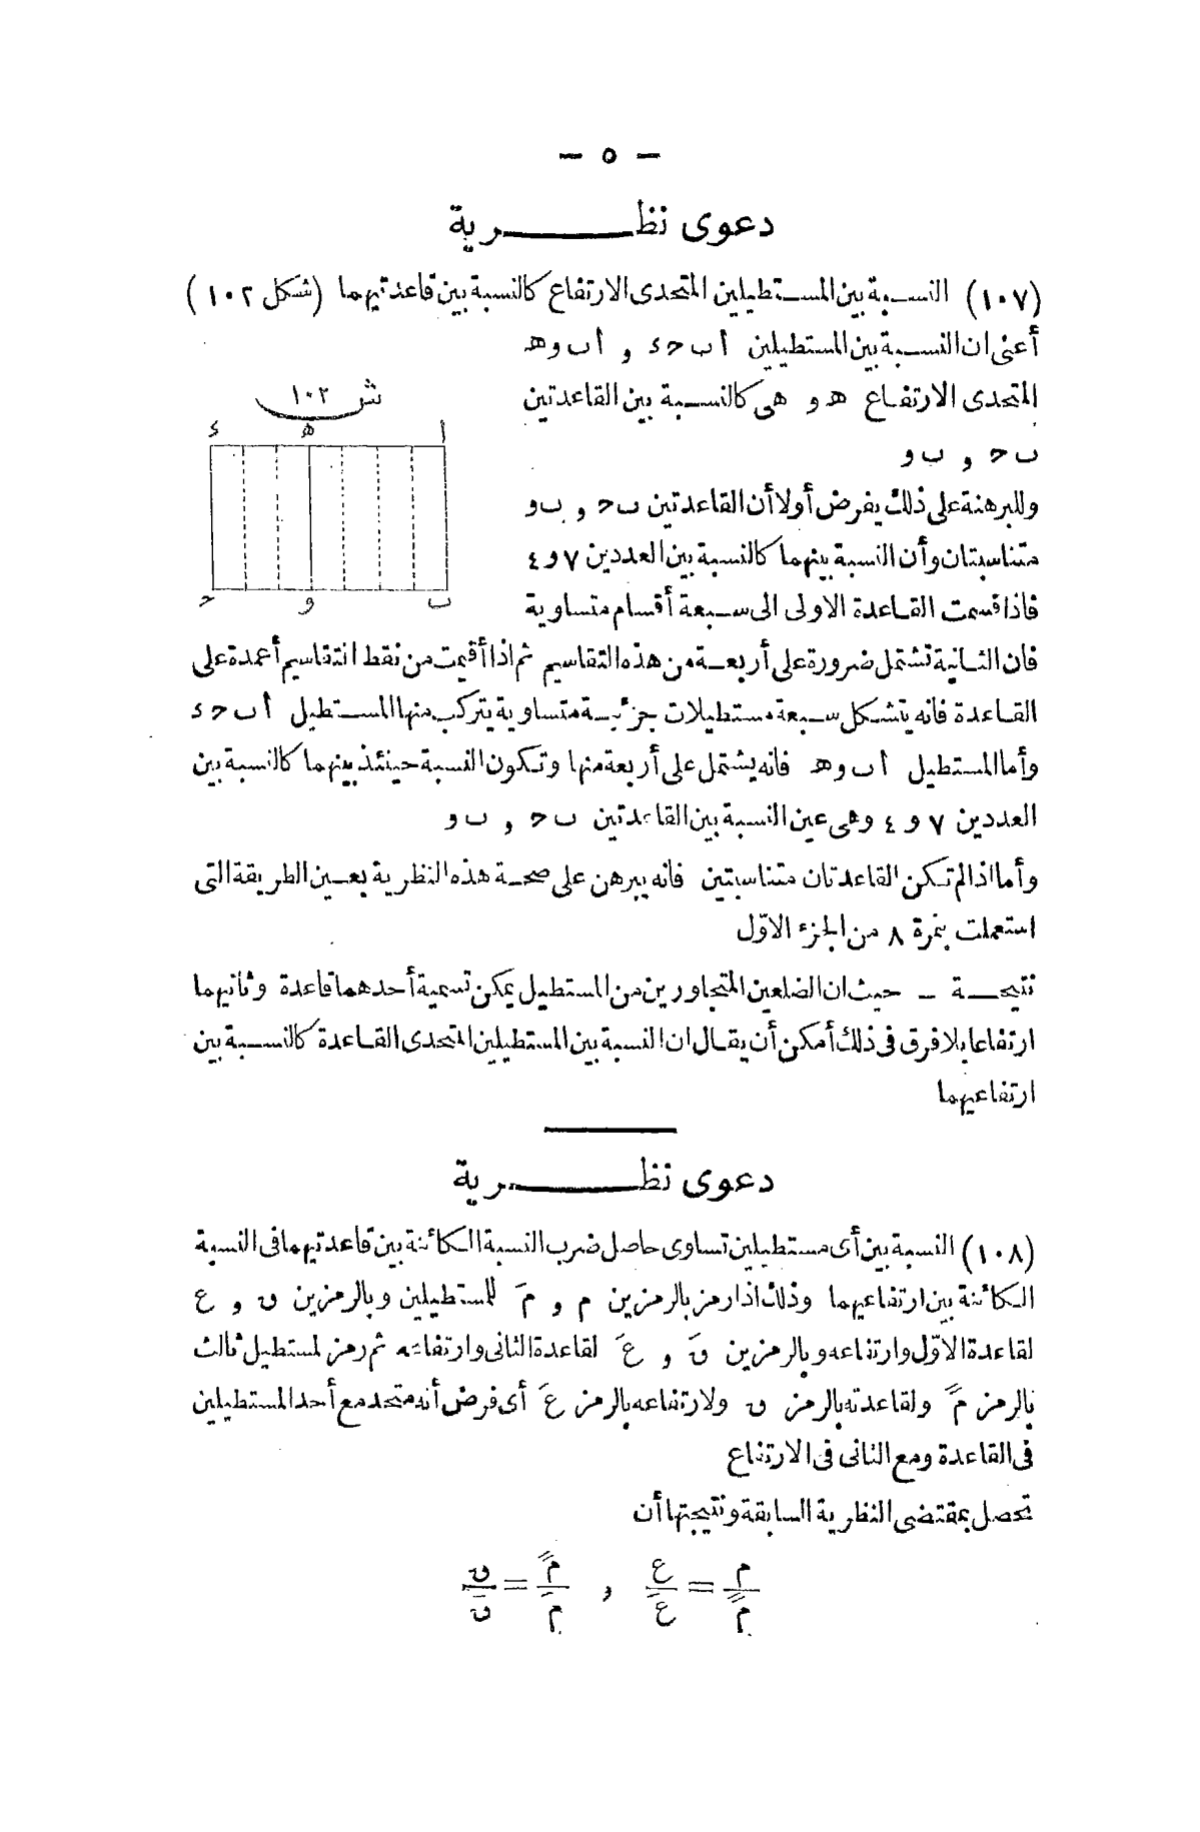 — ٥ —
دعوى نظرية
(١٠٧) النسبة بين المستطيلين المتحدى الارتفاع كالنسبة بين قاعدتيهما (شكل ١٠٢)
أعنى ان النسبة بين المستطيلين أ ب ح ء و أ ب و ه
المتحدى الارتفاع ه و هى كالنسبة بين القاعدتين
ب ح و ب و
وللبرهنة على ذلك يفرض أولا أن القاعدتين ب ح و ب و
متناسبتان وأن النسبة بينهما كالنسبة بين العددين ٧ و ٤
فاذا قسمت القاعدة الاولى الى سبعة أقسام متساوية
ش ١٠٢
ء ه أ
ح و ب
فان الثانية تشتمل ضرورة على أربعة من هذه التقاسيم ثم اذا أقيمت من نقط التقاسيم أعمدة على
القاعدة فانه يتشكل سبعة مستطيلات جزئية متساوية يتركب منها المستطيل أ ب ح ء
وأما المستطيل أ ب و ه فانه يشتمل على أربعة منها وتكون النسبة حينئذ بينهما كالنسبة بين
العددين ٧ و ٤ وهى عين النسبة بين القاعدتين ب ح و ب و
وأما اذا لم تكن القاعدتان متناسبتين فانه يبرهن على صحة هذه النظرية بعين الطريقة التى
استعملت بنمرة ٨ من الجزء الاوّل
نتيجة — حيث ان الضلعين المتجاورين من المستطيل يمكن تسمية أحدهما قاعدة وثانيهما
ارتفاعا بلا فرق فى ذلك أمكن أن يقال ان النسبة بين المستطيلين المتحدى القاعدة كالنسبة بين
ارتفاعيهما
دعوى نظرية
(١٠٨) النسبة بين أى مستطيلين تساوى حاصل ضرب النسبة الكائنة بين قاعدتيهما فى النسبة
الكائنة بين ارتفاعيهما وذلك اذا رمز بالرمزين م و مَ للمستطيلين وبالرمزين ق و ع
لقاعدة الاوّل وارتفاعه وبالرمزين قَ و عَ لقاعدة الثانى وارتفاعه ثم رمز لمستطيل ثالث
بالرمز مً ولقاعدته بالرمز ق ولارتفاعه بالرمز عَ أى فرض أنه متحد مع أحد المستطيلين
فى القاعدة ومع الثانى فى الارتفاع
تحصل بمقتضى النظرية السابقة ونتيجتها أن
م/مً = ع/عَ , مً/مَ = ق/قَ